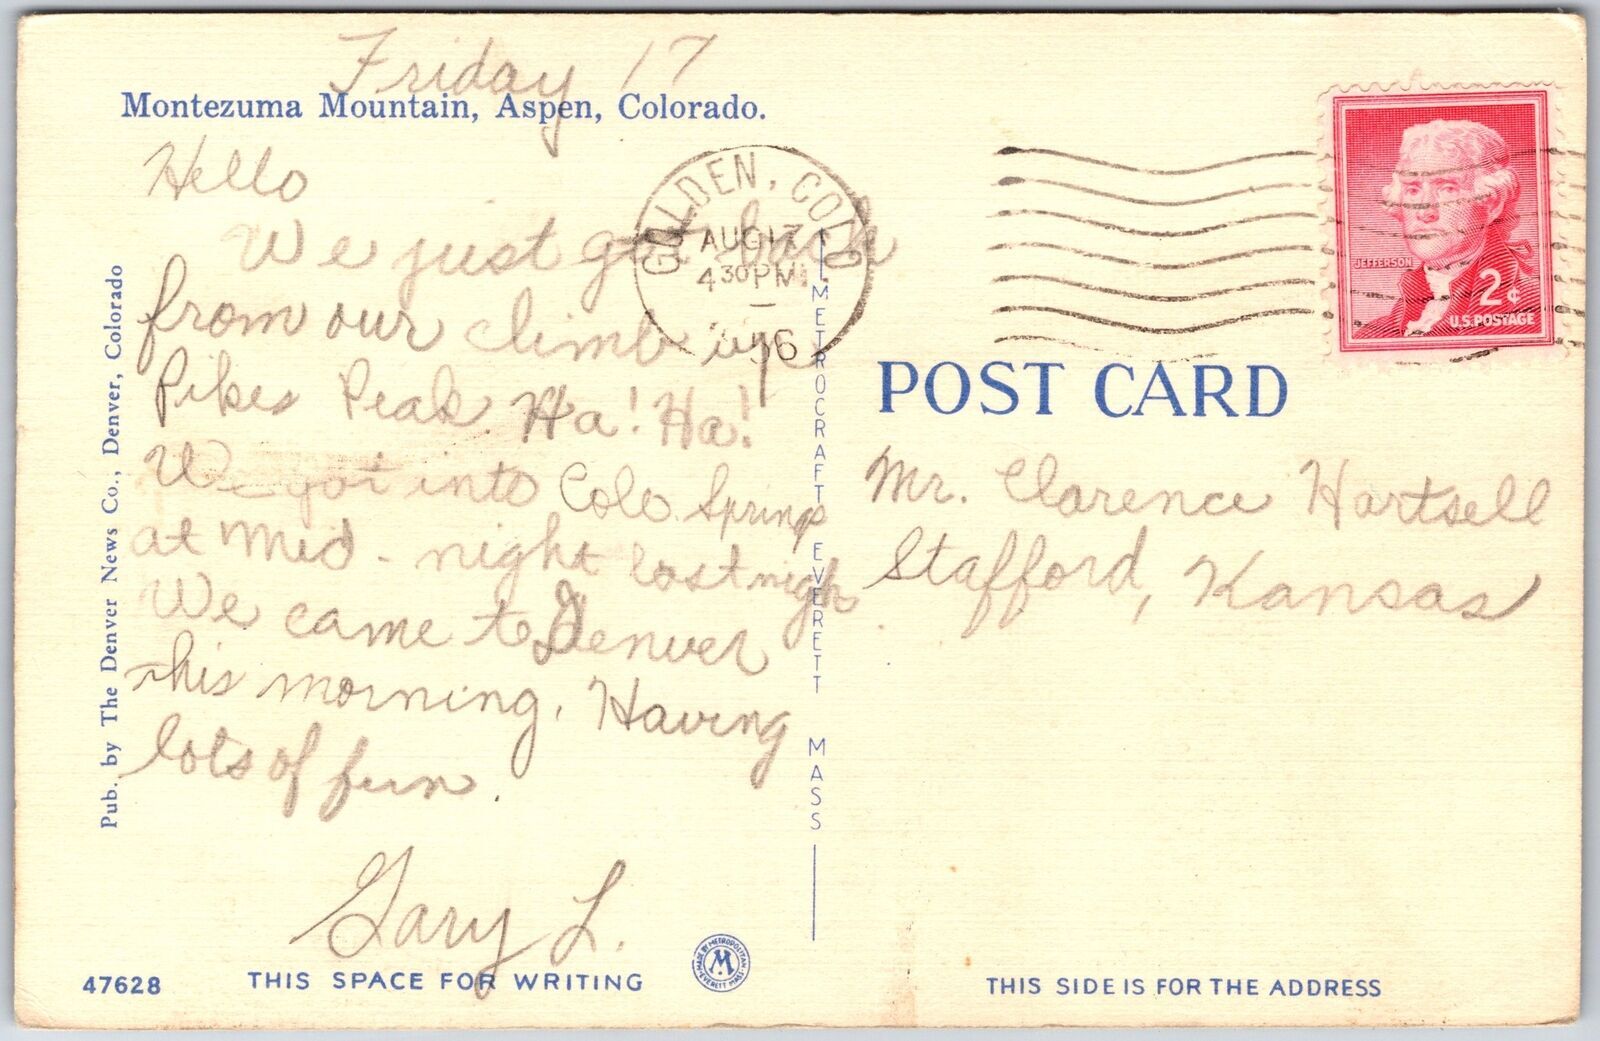 Friday 17
Montezuma Mountain, Aspen, Colorado.
Hello
We just got back
from our climb up
Pikes Peak. Ha! Ha!
We got into Colo. Springs
at Mid-night last nigh
We came to Denver
this morning. Having
lots of fun.
Gary L.
Pub. by The Denver News Co., Denver, Colorado
47628
THIS SPACE FOR WRITING
MADE BY METROPOLITAN
M
EVERETT MASS
METROCRAFT EVERETT MASS
GOLDEN, COLO
AUG 17
4 30 PM
JEFFERSON
2¢
U.S. POSTAGE
POST CARD
Mr. Clarence Hartsell
Stafford, Kansas
THIS SIDE IS FOR THE ADDRESS